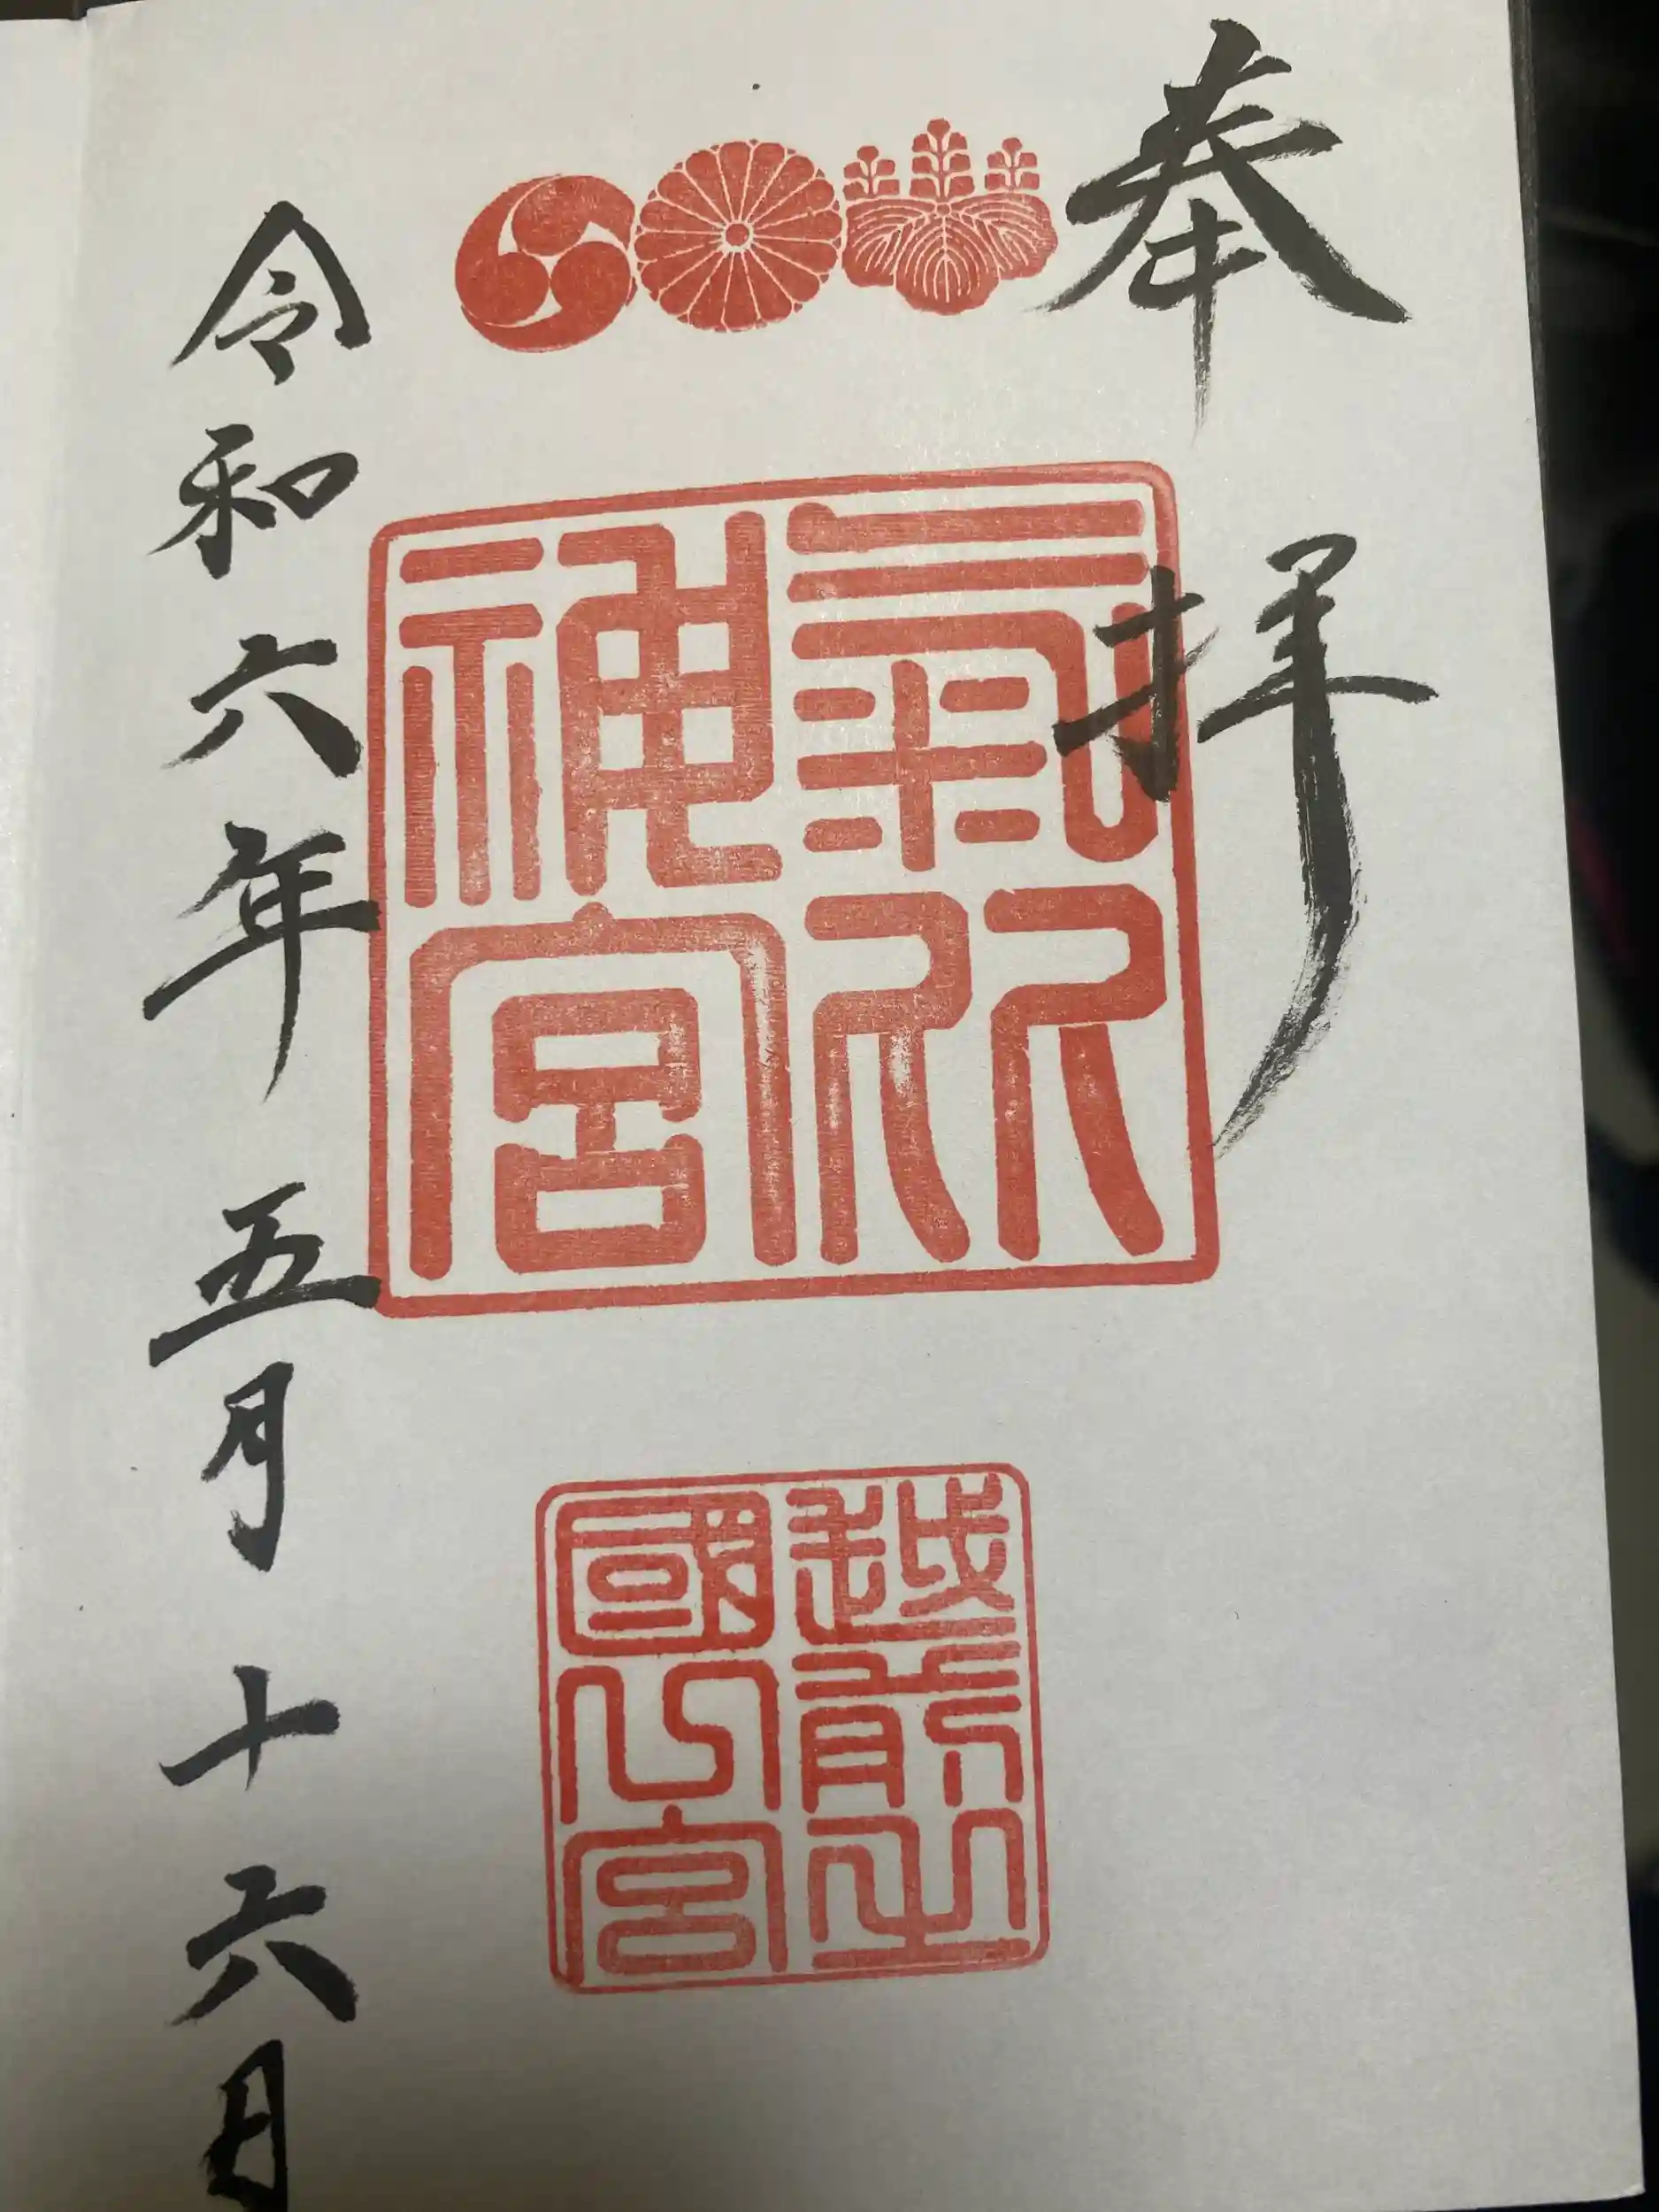 奉拝
氣比
神宮
越前一
國一宮
令和六年五月十六日